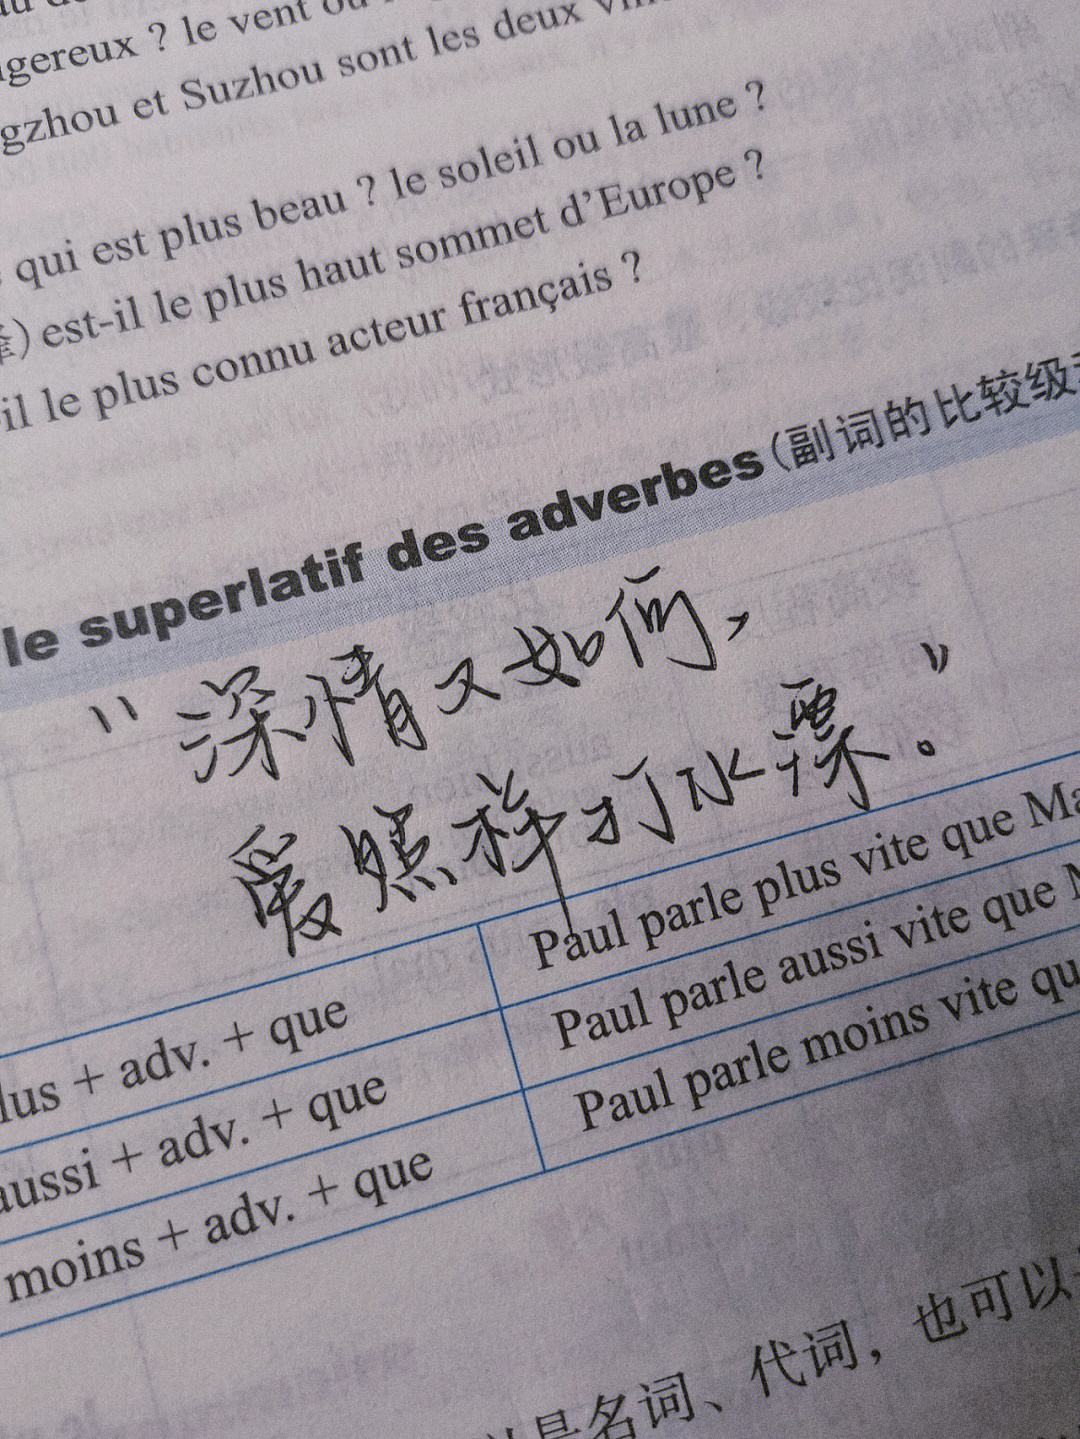 gereux ? le vent ou
gzhou et Suzhou sont les deux
qui est plus beau ? le soleil ou la lune ?
) est-il le plus haut sommet d'Europe ?
il le plus connu acteur français ?
le superlatif des adverbes (副词的比较级
“深情又如何，
爱照样打水漂。”
lus + adv. + que
Paul parle plus vite que Ma
aussi + adv. + que
Paul parle aussi vite que
moins + adv. + que
Paul parle moins vite qu
是名词、代词，也可以